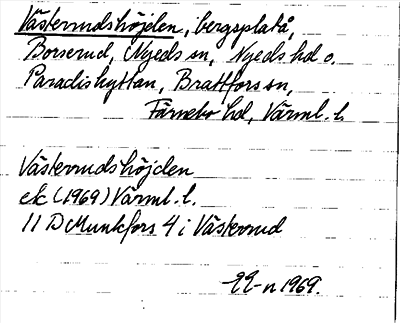 Västerudshöjden, bergsplatå,
Borserud, Nyeds sn, Nyeds hd o.
Paradishyttan, Brattfors sn,
Färnebo hd, Värml. l.
Västerudshöjden
ek (1969) Värml. l.
11 D Munkfors 4 i Västerud
1969.